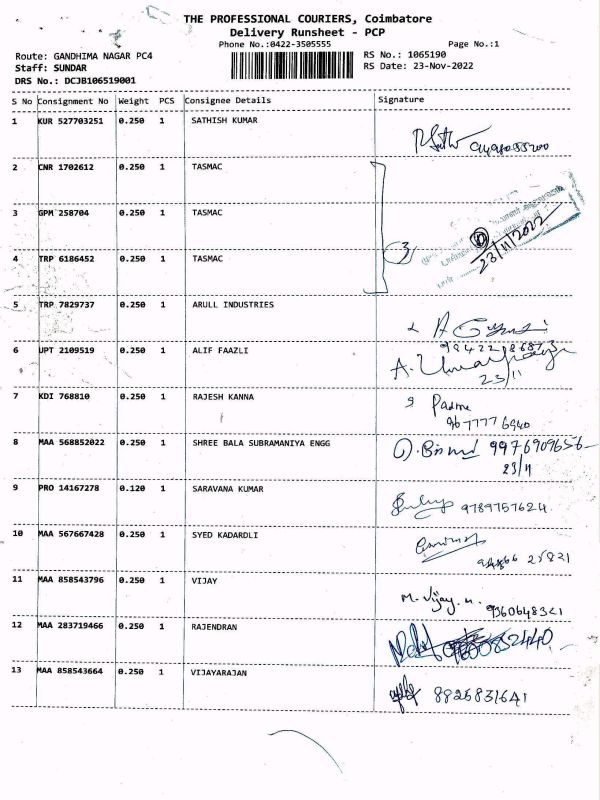 THE PROFESSIONAL COURIERS, Coimbatore
Delivery Runsheet - PCP
Phone No.:0422-3505555 Page No.:1
Route: GANDHIMA NAGAR PC4 RS No.: 1065190
Staff: SUNDAR RS Date: 23-Nov-2022
DRS No.: DCJB106519001
S No Consignment No Weight PCS Consignee Details Signature
1 KUR 527703251 0.250 1 SATHISH KUMAR
2 CNR 1702612 0.250 1 TASMAC
3 GPM 258704 0.250 1 TASMAC
3 23/11/2022
4 TRP 6186452 0.250 1 TASMAC
5 TRP 7829737 0.250 1 ARULL INDUSTRIES
6 UPT 2109519 0.250 1 ALIF FAAZLI
23/11
7 KDI 768810 0.250 1 RAJESH KANNA Padma
967777 6940
8 MAA 568852022 0.250 1 SHREE BALA SUBRAMANIYA ENGG 9976909656
23/11
9 PRO 14167278 0.120 1 SARAVANA KUMAR 9789757624
10 MAA 567667428 0.250 1 SYED KADARDLI
11 MAA 858543796 0.250 1 VIJAY M. Vijay. 9360648321
12 MAA 283719466 0.250 1 RAJENDRAN
13 MAA 858543664 0.250 1 VIJAYARAJAN 8826831641